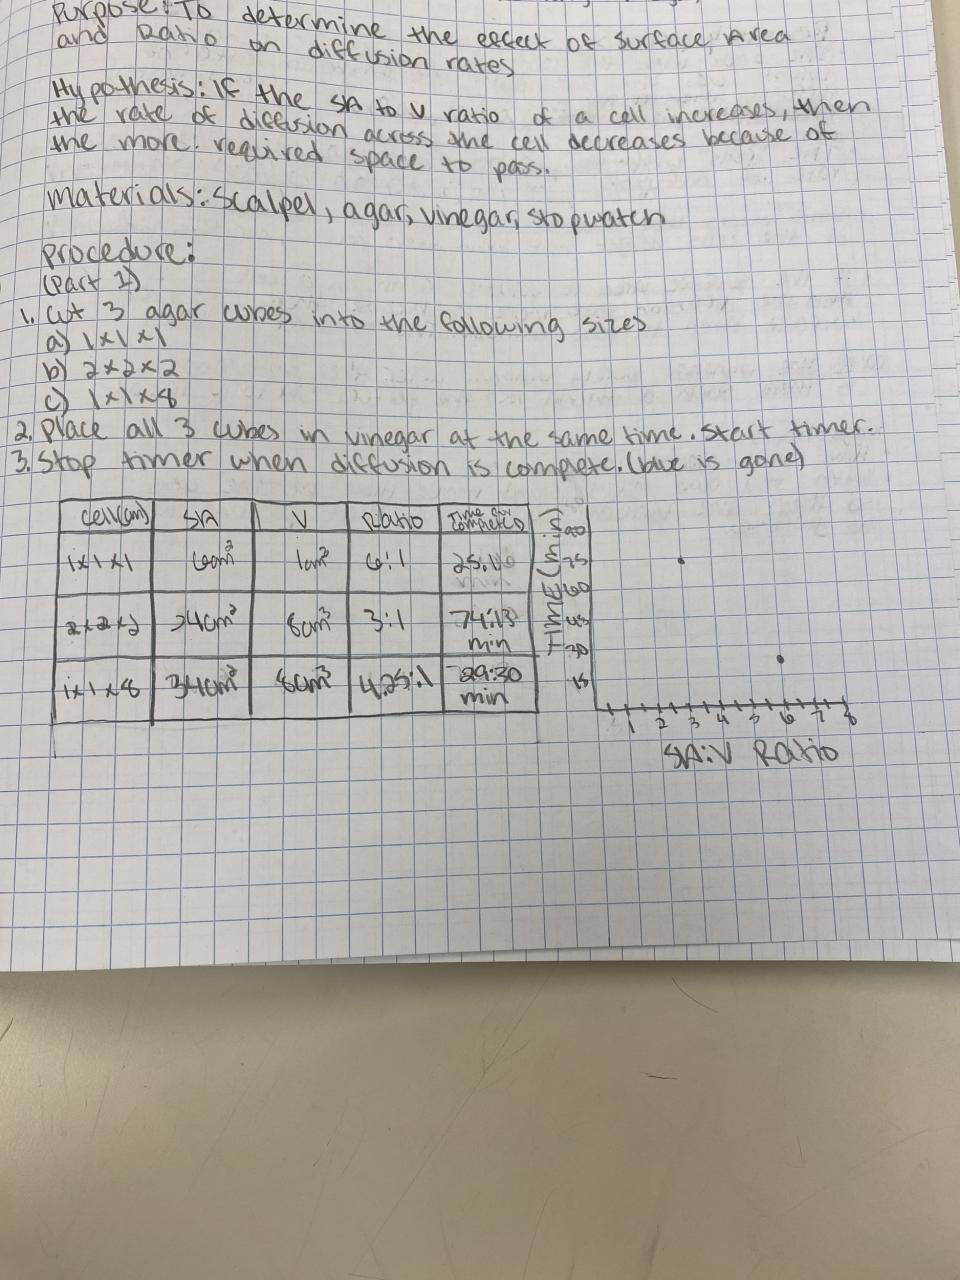 Purpose: To determine the effect of Surface Area
and Ratio on diffusion rates
Hypothesis: If the SA to V ratio of a cell increases, then
the rate of diffusion across the cell decreases because of
the more required space to pass.
Materials: Scalpel, agar, vinegar, stopwatch
Procedure:
(Part 1)
1. Cut 3 agar cubes into the following sizes
a) 1x1x1
b) 2x2x2
c) 1x1x8
2. Place all 3 cubes in vinegar at the same time. Start timer.
3. Stop timer when diffusion is complete. (blue is gone)
Cell(cm) SA V Ratio Time
1x1x1 6cm² 1cm³ 6:1
2x2x2 24cm² 8cm³ 3:1 74:13 min
1x1x8 34cm² 8cm³ 4.25:1 29:30 min
Time (min)
90
75
60
45
30
15
1 2 3 4 5 6 7 8
SA:V Ratio